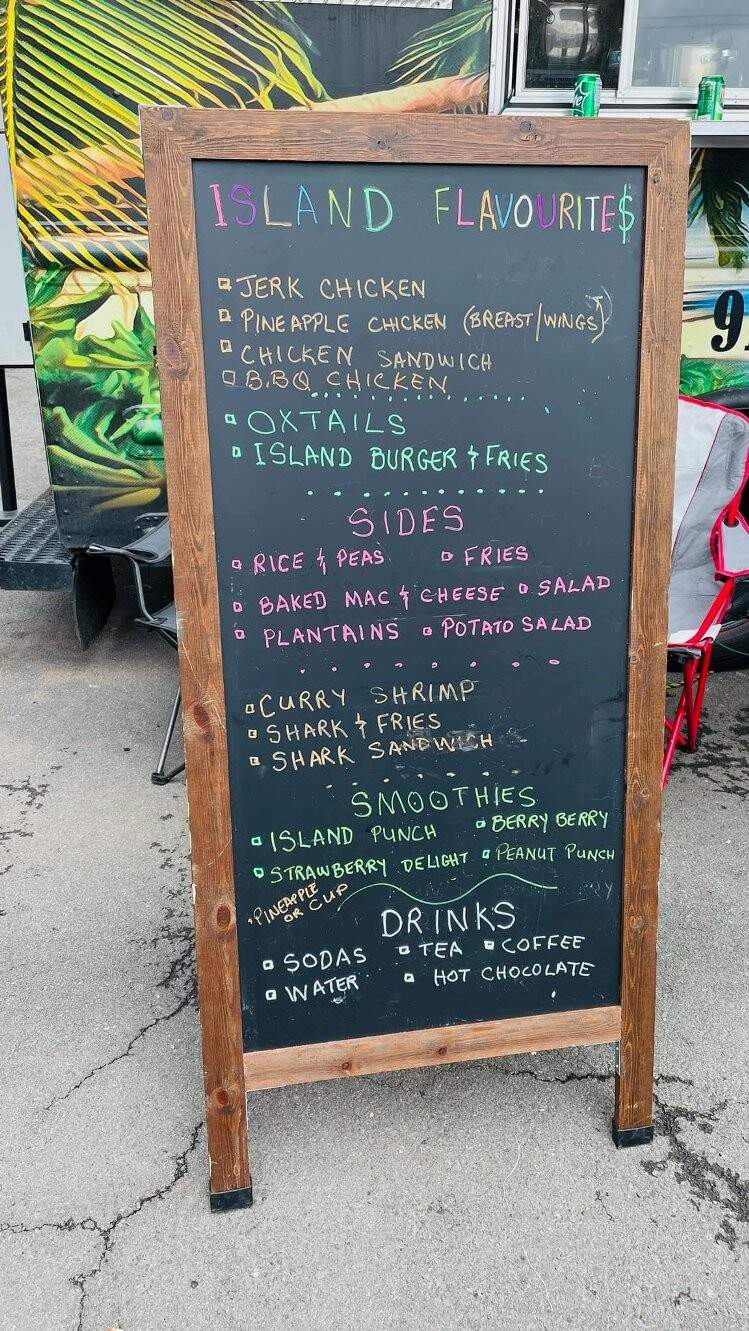 ISLAND FLAVOURITE$
JERK CHICKEN
PINEAPPLE CHICKEN (BREAST/WINGS)
CHICKEN SANDWICH
B.BQ CHICKEN
OXTAILS
ISLAND BURGER & FRIES
SIDES
RICE & PEAS FRIES
BAKED MAC & CHEESE SALAD
PLANTAINS POTATO SALAD
CURRY SHRIMP
SHARK & FRIES
SHARK SANDWICH
SMOOTHIES
ISLAND PUNCH BERRY BERRY
STRAWBERRY DELIGHT PEANUT PUNCH
PINEAPPLE
OR CUP
DRINKS
SODAS TEA COFFEE
WATER HOT CHOCOLATE